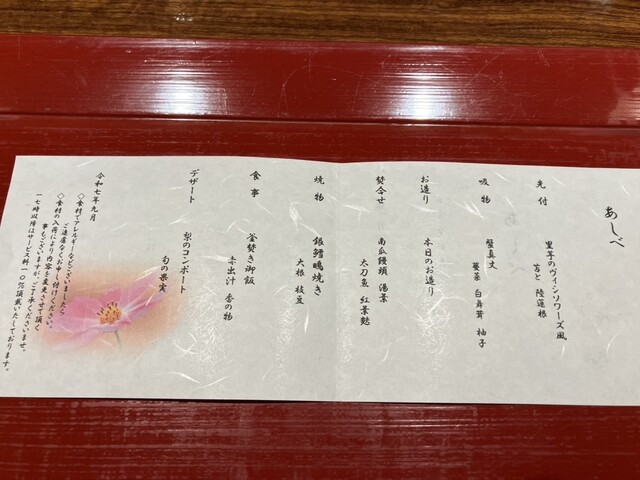 あしべ
先付
里芋のヴィシソワーズ風
苔と 陸蓮根
吸物
蟹真丈
蔓菜 白舞茸 柚子
お造り
本日のお造り
焚合せ
南瓜饅頭 湯葉
太刀魚 紅葉麩
焼物
銀鱈鴫焼き
大根 枝豆
食事
釜焚き御飯
赤出汁 香の物
デザート
梨のコンポート
旬の果実
令和七年九月
◇食材でアレルギーなどございましたら
ご遠慮なくお申し付けください。
◇食材の入荷により内容を変更させて頂く
事もございますが、ご了承くださいませ。
一七時以降はサービス料一〇%頂戴いたしております。